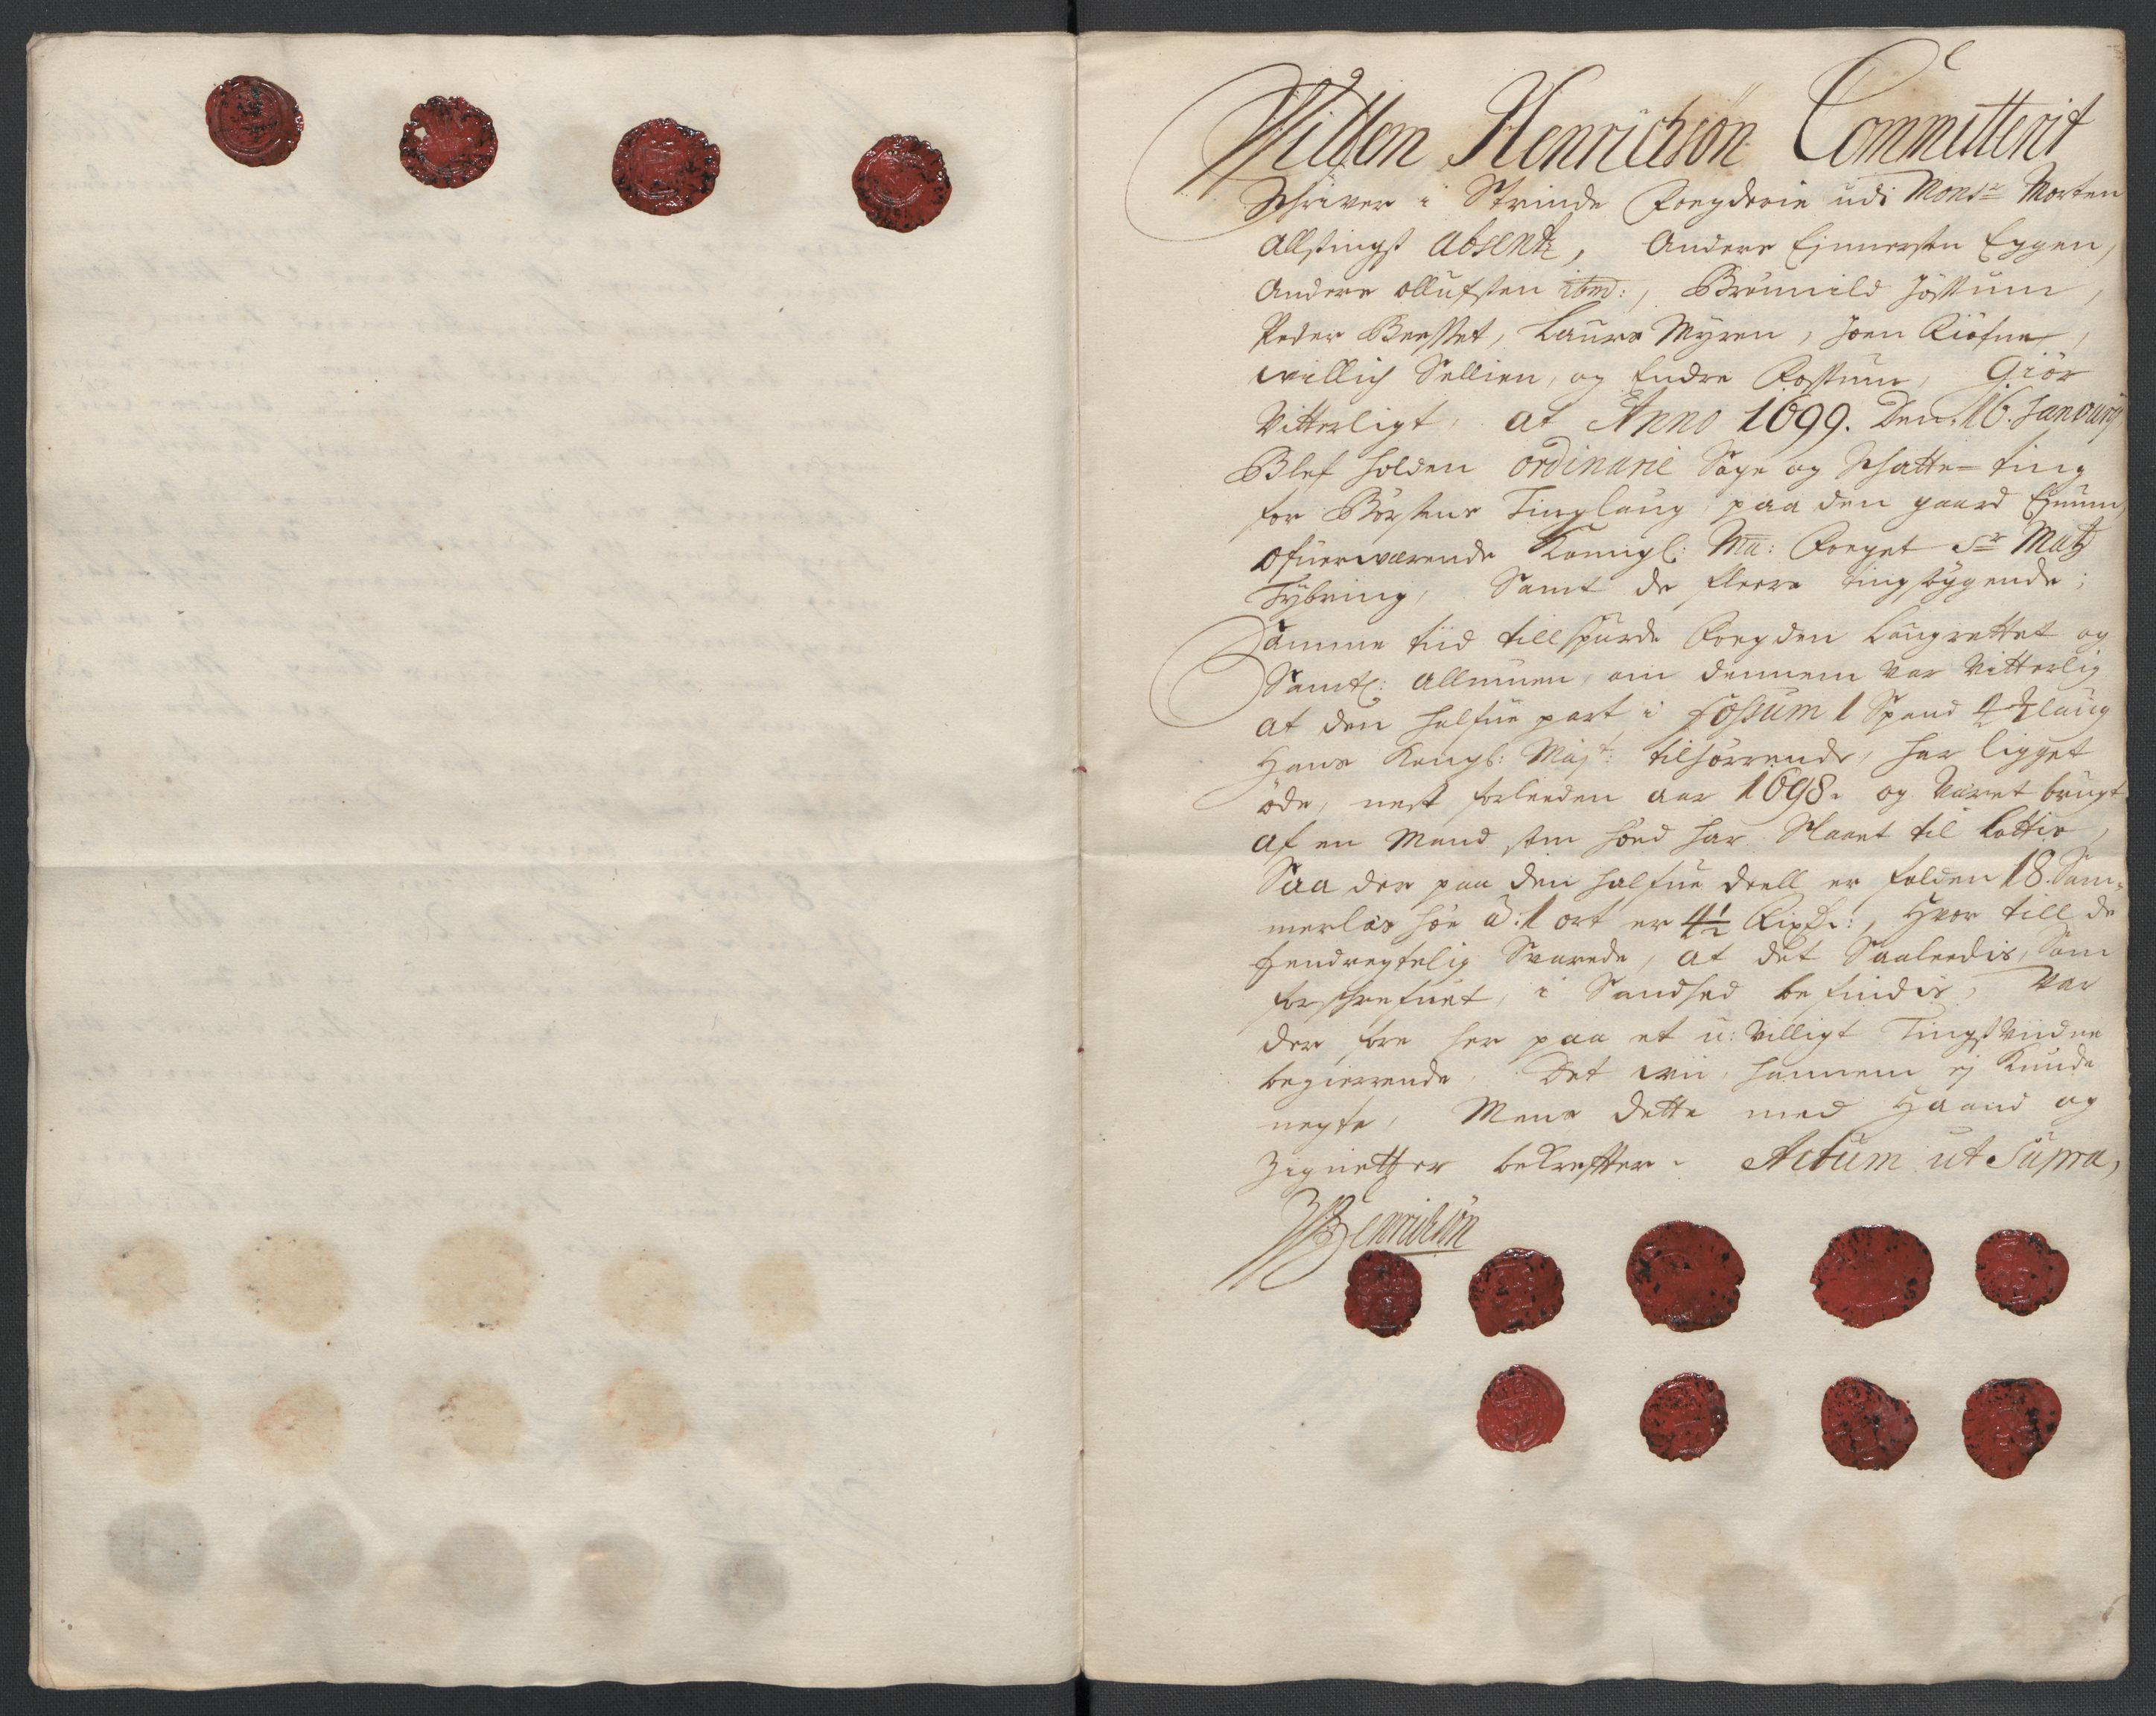 Willem Henrichsön Committerit
Schriver i Strinde Fogderie udi Monsr Morten
Allstingß absentz, Anders Ejnersen Eggen,
Anders Ollufsen ibid:, Brönnild
Peder Bersset, Laurs Myren, Joen
willich Sellien, og Endre Rostum, Giör
Vitterligt, at Anno 1699. Den. 16. Januarij
Blef holden ordinarie Sage og Schatte-ting
for Börsens Tinglaug paa den gaard
ofuerwærende Kongl: Ma: Foeget Sr Matz
Tybring, Samt de fleere tingsögende;
Samme tiid tillspurde Foegden Laugrettet og
Samtl: allmuen, om dennem var vitterlig
at den halfue part i Fossum 1 Spand laug
Hans Kongl: Mayt: tilhörrende, har ligget
öde, nest forleeden aar 1698. og været brugt
af en Mand som höed har Slaaet til Lottis,
Saa der paa den halfue deell er falden 18. Som-
merlas höe á 1 ort er 4½ Rixdr:, Hvor till de
Eendregtelig Svarede, at det Saaleedis, Som
forschrefuet, i Sandhed befindis, var
der fore her paa et u: villigt Tingß Vidne
begierrende, Det wii hannem ej kunde
negte, Mens dette med Haand og
Zignetter bekreffter. Actum ut Supra,
WHenrichsön